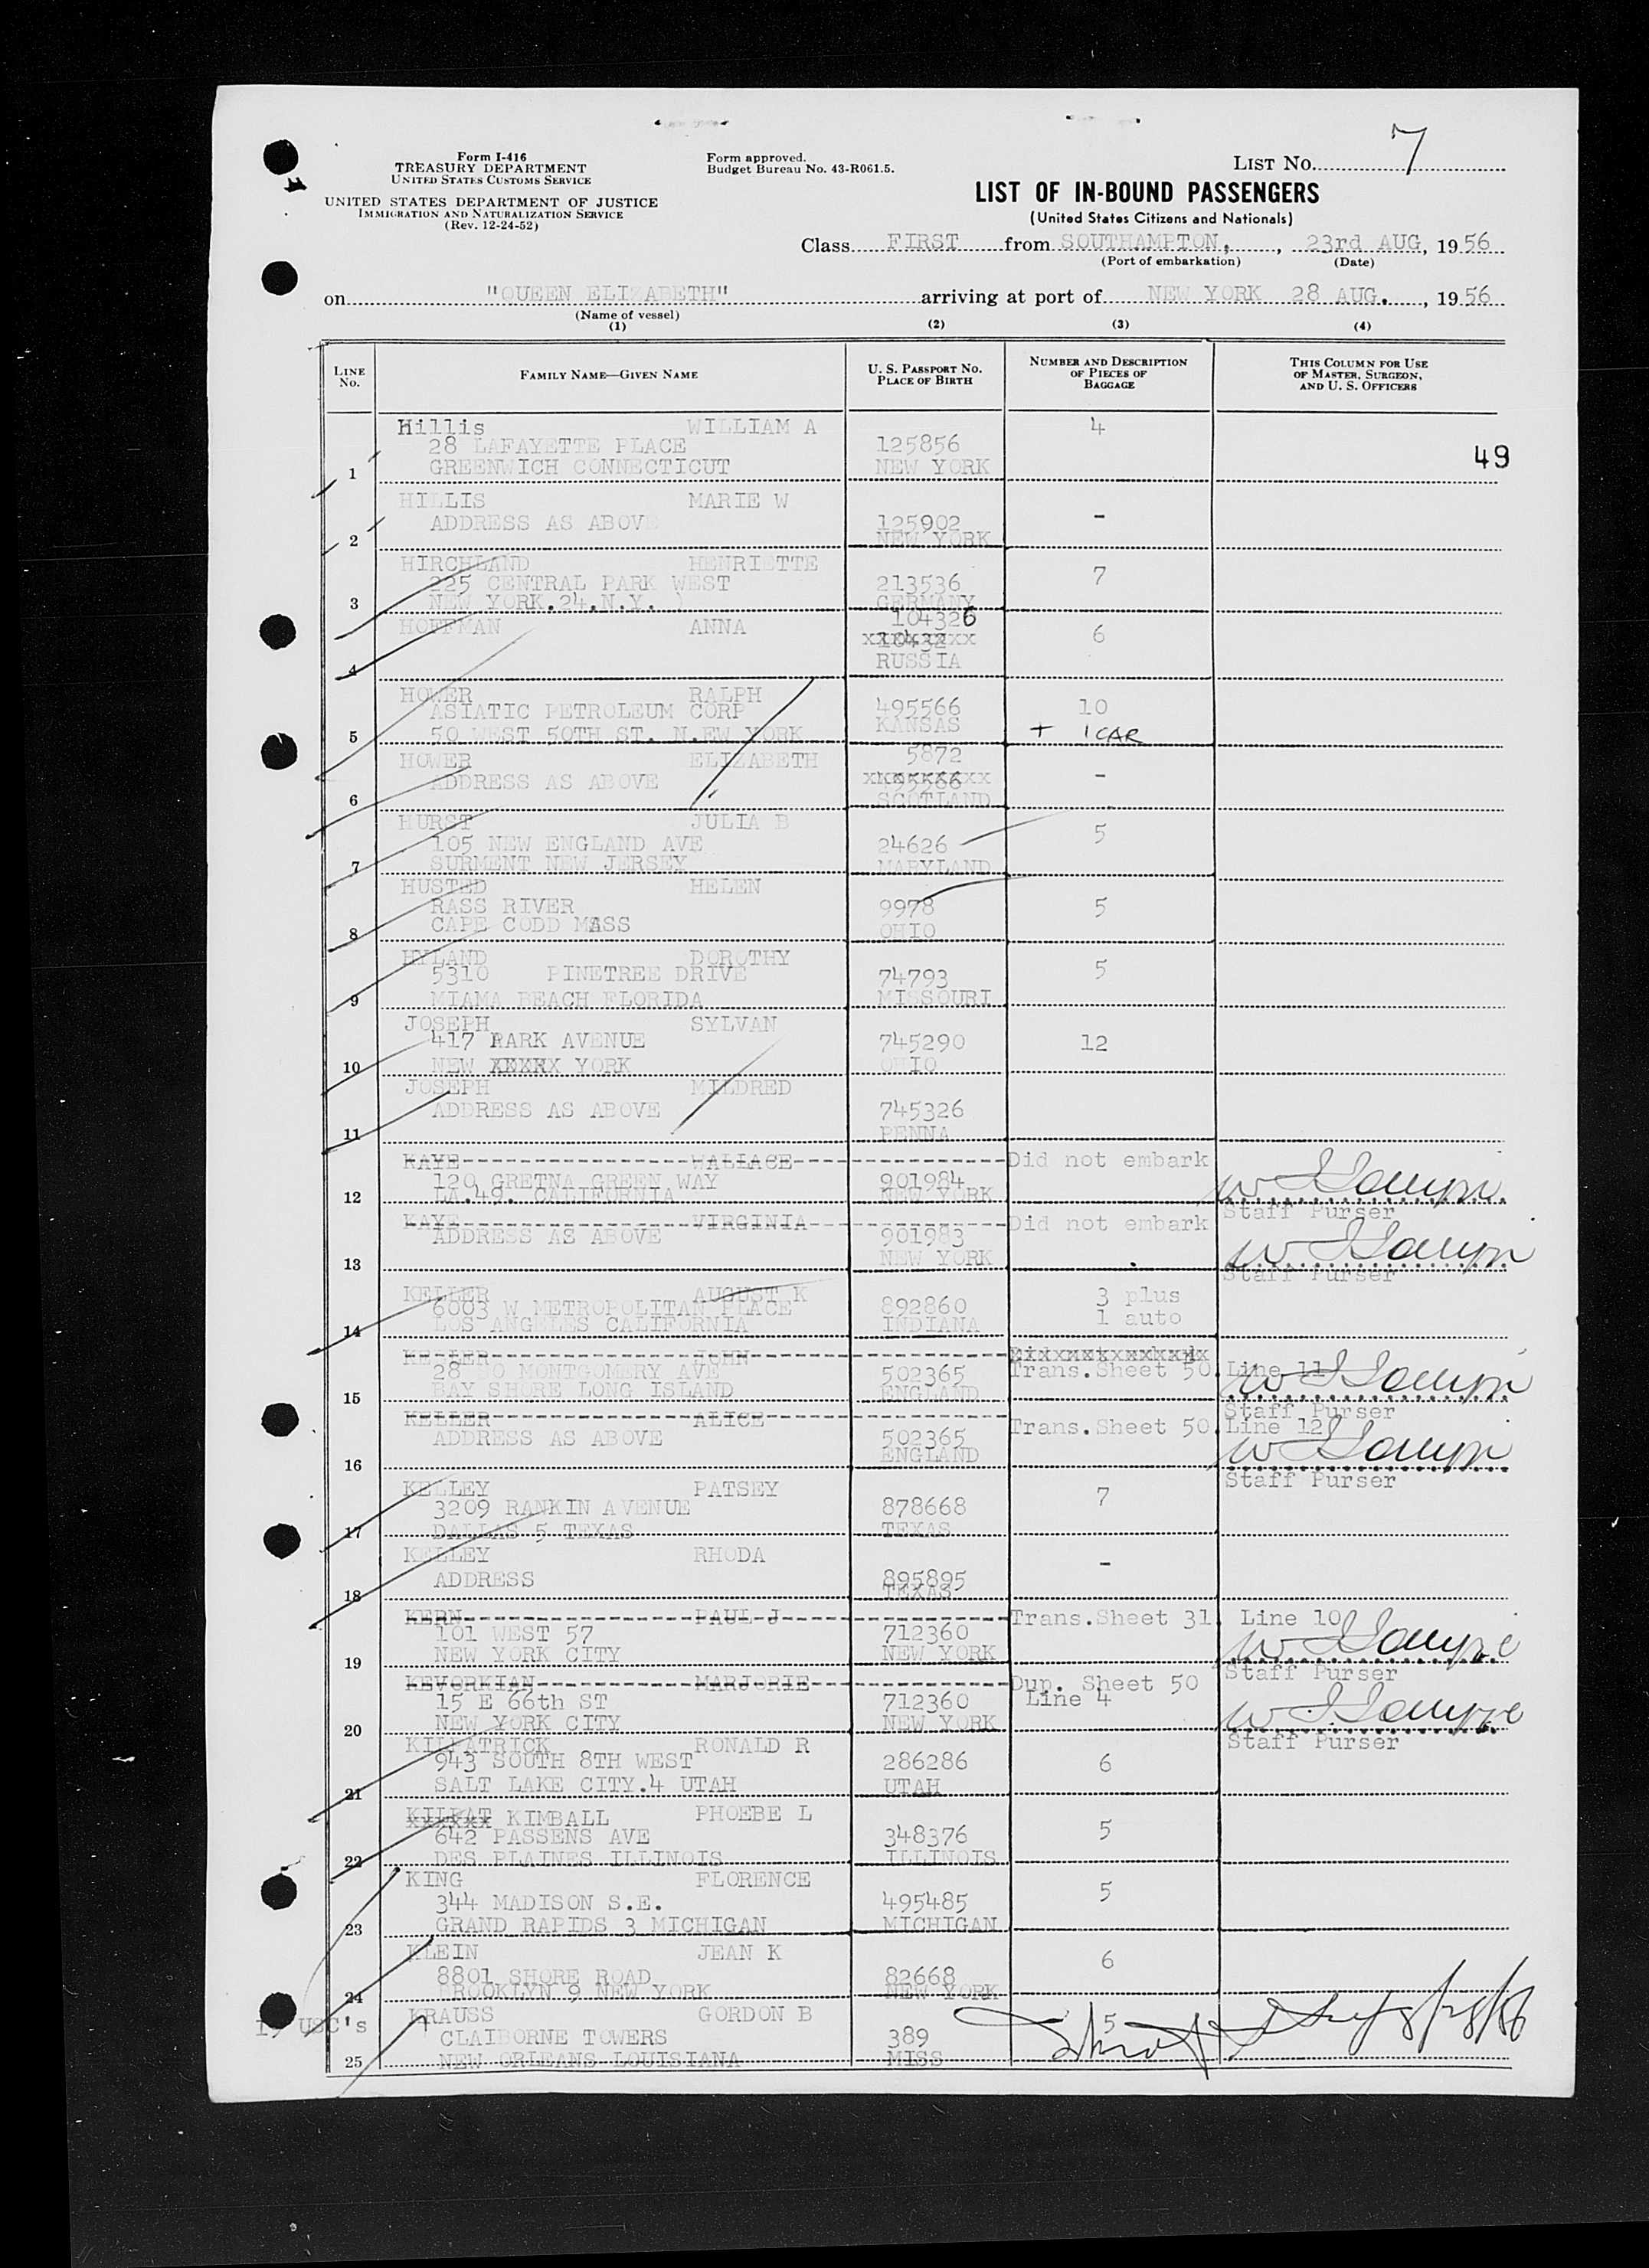 Form I-416
TREASURY DEPARTMENT
UNITED STATES CUSTOMS SERVICE
UNITED STATES DEPARTMENT OF JUSTICE
IMMIGRATION AND NATURALIZATION SERVICE
(Rev. 12-24-52)
Form approved.
Budget Bureau No. 43-R061.5.
LIST NO. 7
LIST OF IN-BOUND PASSENGERS
(United States Citizens and Nationals)
Class FIRST from SOUTHAMPTON, , 23rd AUG, 1956
(Port of embarkation) (Date)
on "QUEEN ELIZABETH" arriving at port of NEW YORK 28 AUG. , 1956
(Name of vessel)
(1) (2) (3) (4)
LINE NO. FAMILY NAME—GIVEN NAME U. S. PASSPORT NO. PLACE OF BIRTH NUMBER AND DESCRIPTION OF PIECES OF BAGGAGE THIS COLUMN FOR USE OF MASTER, SURGEON, AND U. S. OFFICERS
Hillis WILLIAM A 4
28 LAFAYETTE PLACE 125856 49
1 GREENWICH CONNECTICUT NEW YORK
HILLIS MARIE W
ADDRESS AS ABOVE 125902 -
2 NEW YORK
HIRCHLAND HENRIETTE
225 CENTRAL PARK WEST 213536 7
3 NEW YORK.24.N.Y. ) GERMANY
104326
HOFFMAN ANNA 10432 6
4 RUSSIA
HOWER RALPH 495566 10
ASIATIC PETROLEUM CORP KANSAS
5 50 WEST 50TH ST. N.EW YORK + 1 CAR
HOWER ELIZABETH 5872
ADDRESS AS ABOVE 495566 -
6 SCOTLAND
HURST JULIA B
105 NEW ENGLAND AVE 24626 5
7 SURMENT NEW JERSEY MARYLAND
HUSTED HELEN
RASS RIVER 9978 5
8 CAPE CODD MASS OHIO
HYLAND DOROTHY
5310 PINETREE DRIVE 74793 5
9 MIAMA BEACH FLORIDA MISSOURI
JOSEPH SYLVAN
417 PARK AVENUE 745290 12
10 NEW XXXXX YORK OHIO
JOSEPH MILDRED
ADDRESS AS ABOVE 745326
11 PENNA
KAYE WALLACE Did not embark
120 GRETNA GREEN WAY 901984
12 LA.49. CALIFORNIA NEW YORK
Staff Purser
KAYE VIRGINIA Did not embark
ADDRESS AS ABOVE 901983
13 NEW YORK
Staff Purser
KELLER AUGUST K 3 plus
6003 W METROPOLITAN PLACE 892860 1 auto
14 LOS ANGELES CALIFORNIA INDIANA
KELLER JOHN
28 SO MONTGOMERY AVE 502365 Trans.Sheet 50. Line 11
15 BAY SHORE LONG ISLAND ENGLAND
Staff Purser
KELLER ALICE Trans.Sheet 50. Line 12
ADDRESS AS ABOVE 502365
16 ENGLAND
Staff Purser
KELLEY PATSEY 7
3209 RANKIN AVENUE 878668
17 DALLAS 5 TEXAS TEXAS
KELLEY RHODA -
ADDRESS 895895
18 TEXAS
KERN PAUL J Trans.Sheet 31. Line 10
101 WEST 57 712360
19 NEW YORK CITY NEW YORK
Staff Purser
KEVORKIAN MARJORIE Dup. Sheet 50
15 E 66th ST 712360 Line 4
20 NEW YORK CITY NEW YORK
Staff Purser
KILPATRICK RONALD R
943 SOUTH 8TH WEST 286286 6
21 SALT LAKE CITY.4 UTAH UTAH
KILPAT KIMBALL PHOEBE L
642 PASSENS AVE 348376 5
22 DES PLAINES ILLINOIS ILLINOIS
KING FLORENCE
344 MADISON S.E. 495485 5
23 GRAND RAPIDS 3 MICHIGAN MICHIGAN
KLEIN JEAN K
8801 SHORE ROAD 82668 6
24 BROOKLYN 9 NEW YORK NEW YORK
USC's KRAUSS GORDON B 5
CLAIBORNE TOWERS 389
25 NEW ORLEANS LOUISIANA MISS